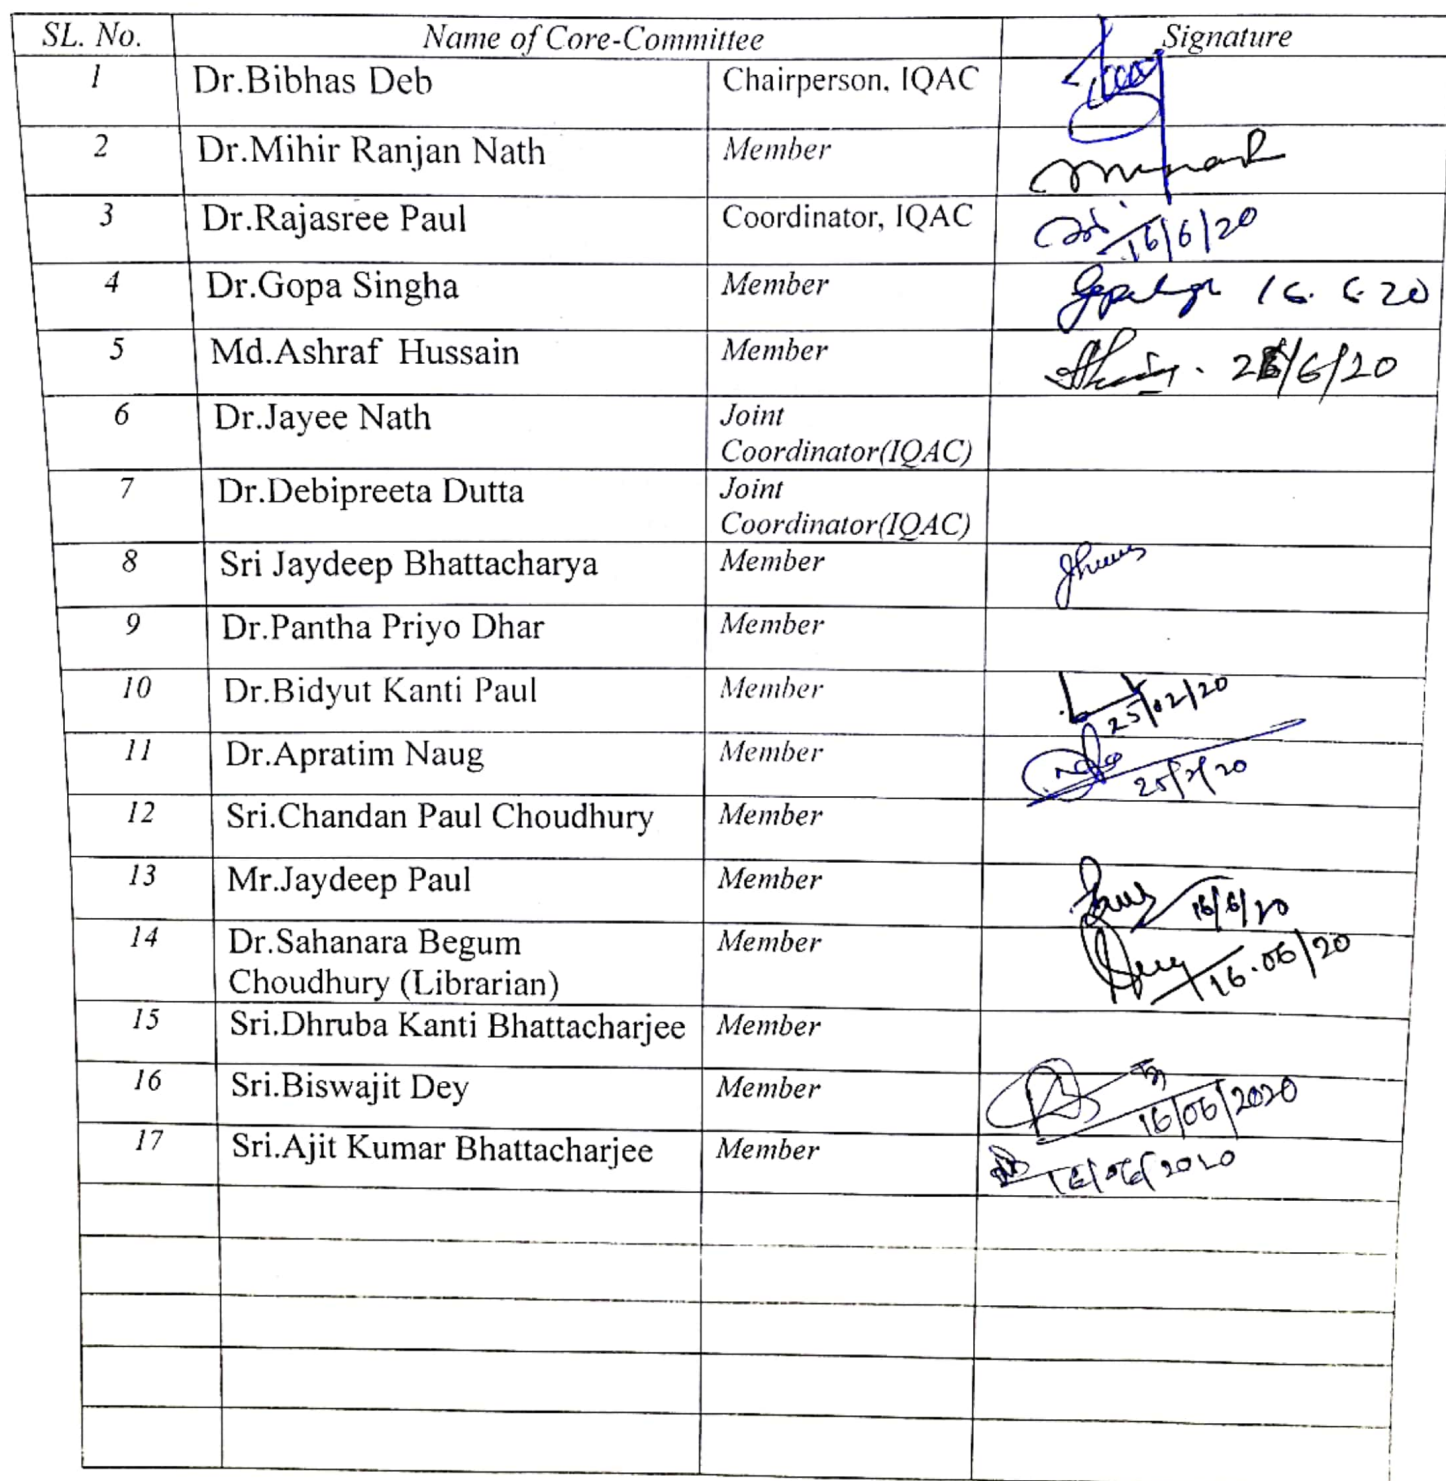 SL. No. Name of Core-Committee Signature
1 Dr.Bibhas Deb Chairperson, IQAC
2 Dr.Mihir Ranjan Nath Member
3 Dr.Rajasree Paul Coordinator, IQAC 16/6/20
4 Dr.Gopa Singha Member 16. 6 20
5 Md.Ashraf Hussain Member /6/20
6 Dr.Jayee Nath Joint
Coordinator(IQAC)
7 Dr.Debipreeta Dutta Joint
Coordinator(IQAC)
8 Sri Jaydeep Bhattacharya Member
9 Dr.Pantha Priyo Dhar Member
10 Dr.Bidyut Kanti Paul Member 25/02/20
11 Dr.Apratim Naug Member 25/2/20
12 Sri.Chandan Paul Choudhury Member
13 Mr.Jaydeep Paul Member 16/6/20
14 Dr.Sahanara Begum Member 16.06/20
Choudhury (Librarian)
15 Sri.Dhruba Kanti Bhattacharjee Member
16 Sri.Biswajit Dey Member 16/06/2020
17 Sri.Ajit Kumar Bhattacharjee Member 16/06/2020